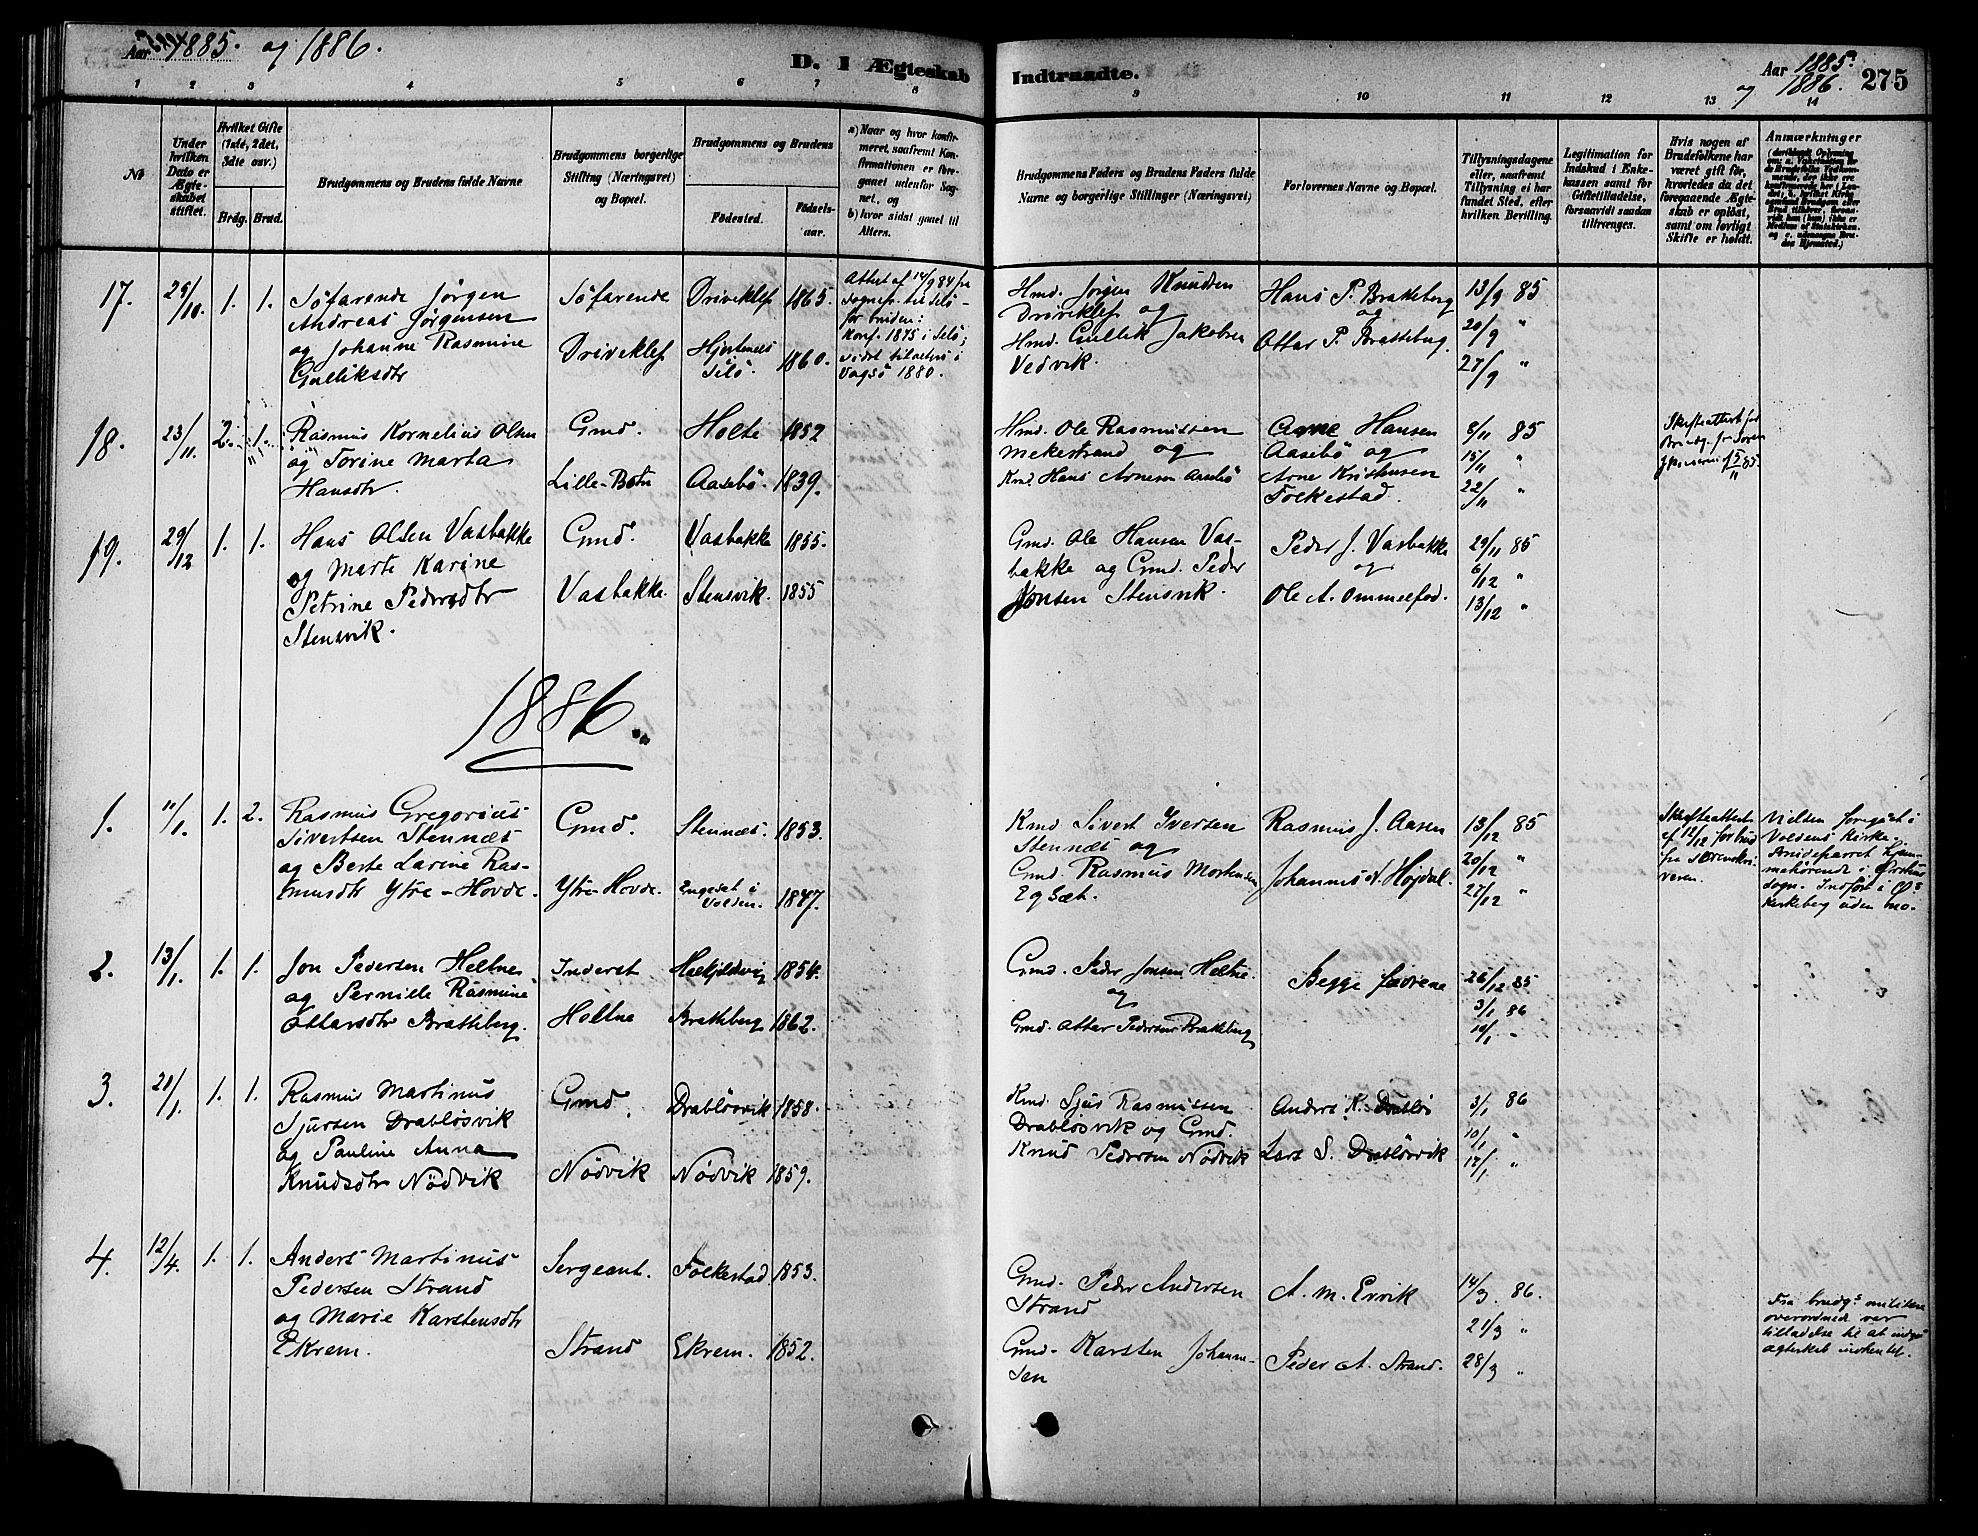 Aar 1885. og 1886.
D. I Ægteskab
Indtraadte.
Aar 1885.
og 1886.
275
1 2 3 4 5 6 7 8
9 10 11 12 13 14
No
Under hvilken Dato er Ægteskabet stiftet.
Hvilket Gifte (1ste, 2det, 3die osv.)
Brdg. Brud.
Brudgommens og Brudens fulde Navne
Brudgommens borgerlige Stilling (Næringsvei) og Bopæl.
Brudgommens og Brudens
Fødested.
Fødselsaar.
a) Naar og hvor konfirmeret, saafremt Konfirmationen er foregaaet udenfor Sognet, og
b) hvor sidst gaaet til Alters.
Brudgommens Faders og Brudens Faders fulde Navne og borgerlige Stillinger (Næringsvei)
Forlovernes Navne og Bopæl.
Tillysningsdagene eller, saafremt Tillysning ei har fundet Sted, efter hvilken Bevilling.
Legitimation for Indskud i Enkekassen samt for Giftetilladelse, forsaavidt saadan tiltrænges.
Hvis nogen af Brudefolkene har været gift før, hvorledes da det foregaaende Ægteskab er opløst, samt om lovligt Skifte er holdt.
Anmærkninger
17. 25/10. 1. 1. Söfarende Jörgen
Andreas Jörgensen
og Johanne Rasmine
Gulliksdtr
Söfarende
Driveklef
Driveklef 1865.
Hjertenes
Selö 1860.
Attest af 14/9 84 fra
sognepr. til Selö
for bruden:
Konf. 1875 i Selö;
sidst tilalters i
Vagsö 1880.
Hmd. Jörgen Knudsen
Driveklef og
Hmd. Gullik Jakobsen
Vedvik.
Hans P. Bratteberg
og
Ottar P. Bratteberg.
13/9 85
20/9 "
27/9 "
18. 23/11. 2. 1. Rasmus Kornelius Olsen
og Torine Marta
Hansdtr.
Gmd.
Lille-Botn
Holte 1852
Aasebö. 1839.
Hmd. Ole Rasmussen
Mekestrand og
Kmd. Hans Arnesen Aasebö
Arne Hansen
Aasebö og
Arne Kristensen
Folkestad.
8/11 85
15/11 "
22/11 "
Skifteattest for
Brudg. fr Soren
15/11 85.
19. 29/12 1. 1. Hans Olsen Vasbakke
og Marte Karine
Petrine Pedersdtr
Stensvik.
Gmd.
Vasbakke.
Vasbakke 1855.
Stensvik. 1855
Gmd. Ole Hansen Vas-
bakke og Gmd. Peder
Jonsen Stensvik.
Peder J. Vasbakke
og
Ole A. Ommelfod.
29/11 85
6/12 "
13/12 "
1886.
1. 11/1. 1. 2. Rasmus Gregorius
Sivertsen Stennæs
og Berte Larine Ras-
musdtr Ytre-Hovde.
Gmd.
Ytre-Hovde.
Stennæs. 1853.
Engeset i
Volden. 1847.
Kmd Sivert Iversen
Stennæs og
Gmd. Rasmus Mortensen
Egsæt.
Rasmus J. Aasen
Johannes N. Højdal.
13/12 85
20/12 "
27/12 "
Skifteattest
af 12/12 for brud
fra sorenskri-
veren.
Vielsen foregået i
Voldens Kirke.
Brudeparret hjem-
mehörende i Örstens
sogn. Indført i Ø.s
Kirkebog uden no.
2. 13/1. 1. 1. Jon Pedersen Heltne
og Pernille Rasmine
Ottarsdtr Bratteberg.
Inderst
Heltne
Helkjeldsvig 1854.
Bratteberg 1862.
Gmd. Peder Jonsen Heltne
og
Gmd. Ottar Pedersen Bratteberg
Begge fædrene
26/12 85
3/1 86
10/1 "
3. 21/1. 1. 1. Rasmus Martinus
Sjursen Drablösvik
og Pauline Anna
Knudsdtr Nödvik
Gmd.
Nödvik
Drablösvik 1858.
Nödvik 1859.
Kmd. Sjur Rasmussen
Drablösvik og Gmd.
Knud Pedersen Nödvik
Anders K. Drablös
Lars S. Drablösvik
3/1 86
10/1 "
17/1 "
4. 12/4. 1. 1. Anders Martinus
Pedersen Strand
og Marie Karstensdtr
Ekrem.
Sergeant.
Strand
Folkestad 1853.
Ekrem. 1852.
Gmd. Peder Andersen
Strand
Gmd. Karsten Johann-
sen
A. M. Ervik
Peder A. Strand.
14/3 86.
21/3 "
28/3 "
Fra brudg.s militære
overordnede var
tilladelse til at indgå
ægteskab indhentet.